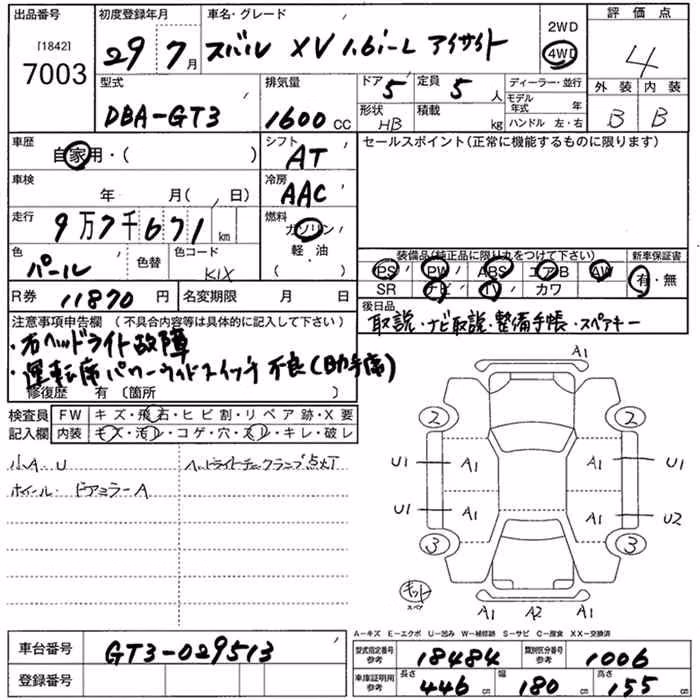 出品番号 初度登録年月 車名・グレード 2WD 評価点
[1842] 29 7月 スバル XV 1.6i-L アイサイト 4WD 4
7003
型式 排気量 ドア 5 定員 5 人 ディーラー・並行 外装 内装
DBA-GT3 1600 CC 形状 HB 積載 kg モデル年式 年 B B
ハンドル 左・右
車歴 自家用・( ) シフト AT セールスポイント(正常に機能するものに限ります)
車検 年 月( , ) 冷房 AAC
走行 9万7千671 km 燃料 ガソリン
軽・油
・( )
色 パール 色替 色コード KIX
装備品(純正品に限り丸をつけて下さい) 新車保証書
PS PW ABS エアB AW 有・無
SR ナビ TV カワ
R券 11870 円 名変期限 月 日 後日品
取説・ナビ取説・整備手帳・スペアキー
注意事項申告欄 (不具合内容等は具体的に記入して下さい)
・右ヘッドライト故障
・運転席パワーウィンドスイッチ不良(助手席)
修復歴 有 〔箇所 〕
検査員 FW キズ・飛石・ヒビ割・リペア跡・X要
記入欄 内装 キズ・汚レ・コゲ・穴・スレ・キレ・破レ
小A U ヘッドライトチェックランプ点灯
ホイール・ドアミラーA
A1
2 2
U1 A1 A1 U1
U1 A1 A1 A1 U2
3 3
キット
スペア
A1 A2 A1
A-キズ E-エクボ U-凹み W-補修跡 S-サビ C-腐食 XX-交換済
車台番号 GT3-029513
型式指定番号 参考 18484 類別区分番号 参考 1006
登録番号
車庫証明用 参考 長さ 446 cm 幅 180 cm 高さ 155 cm